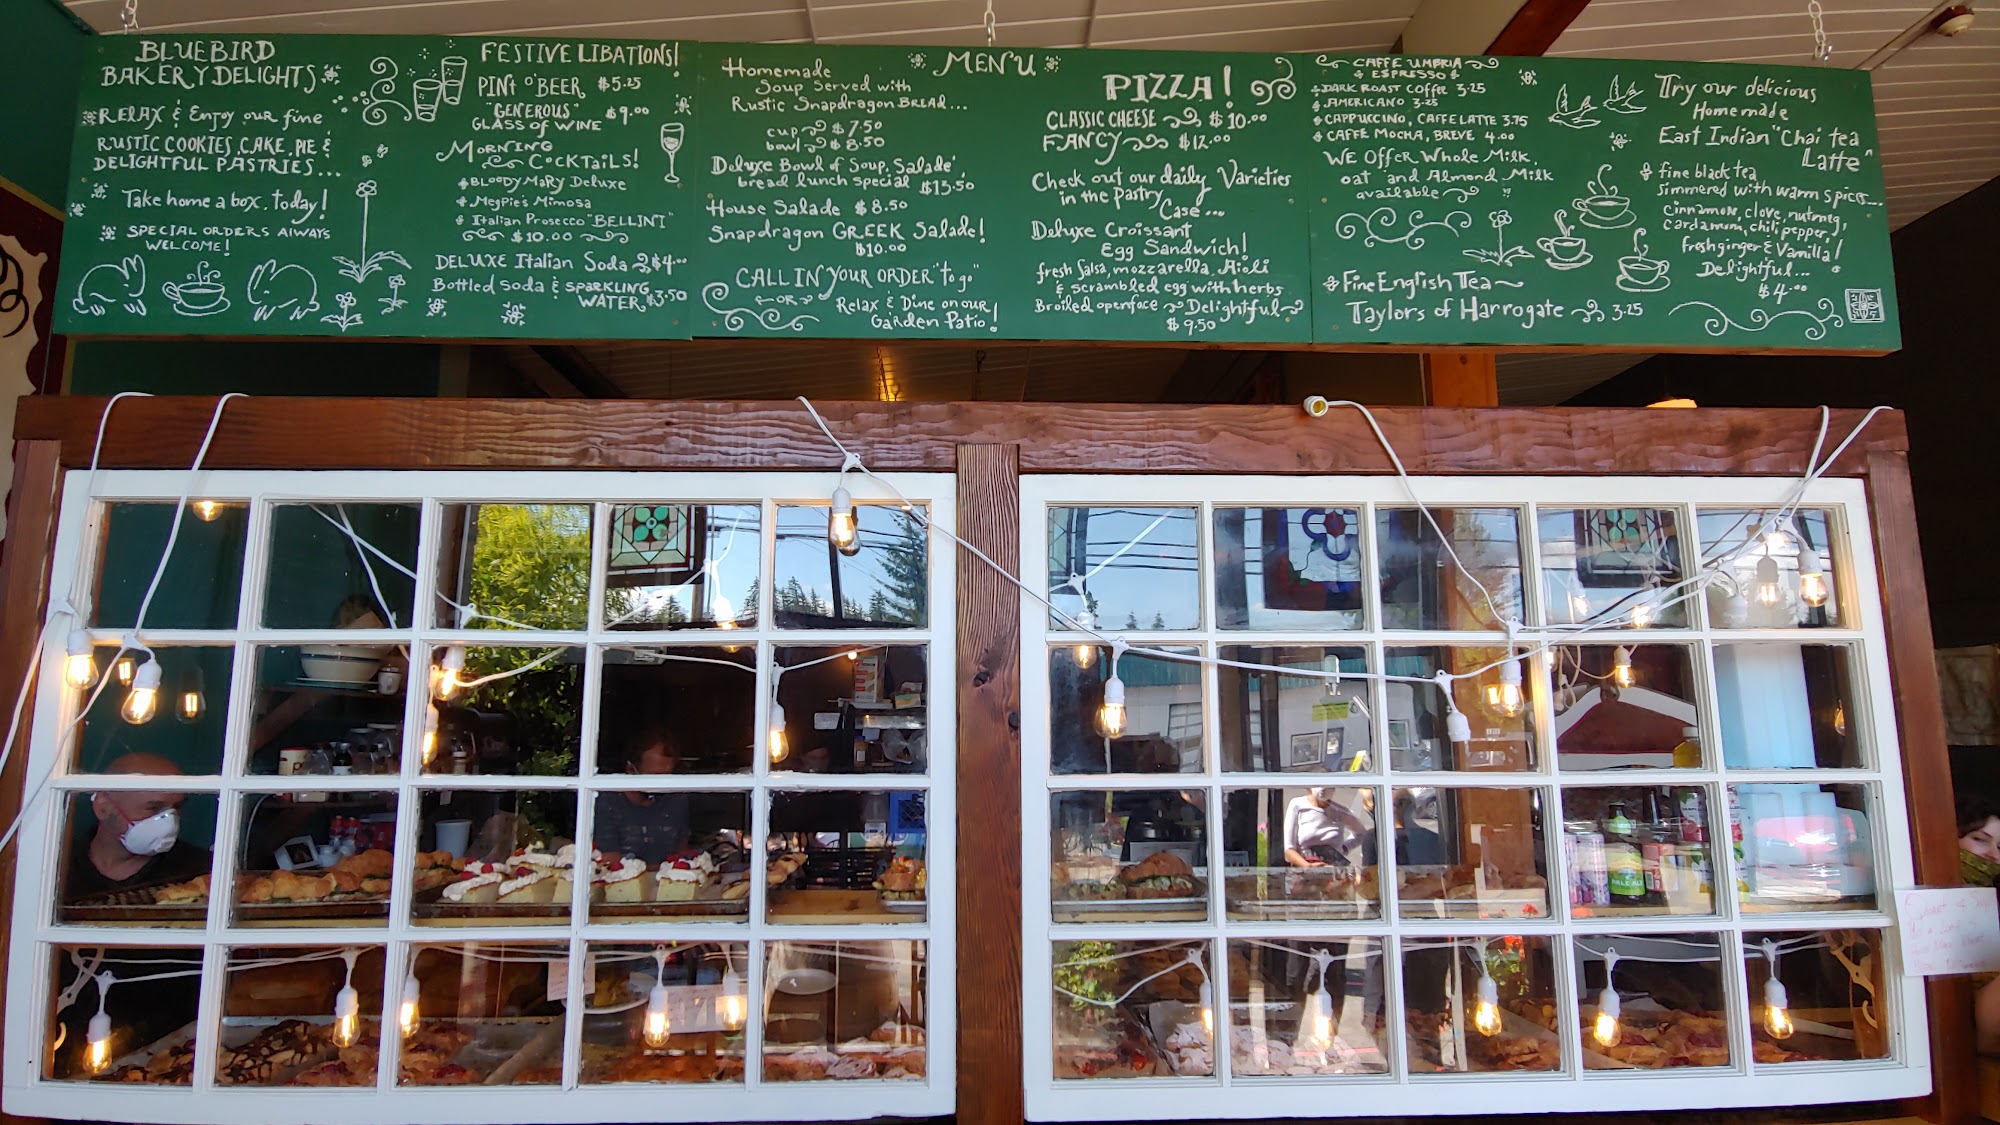 BLUEBIRD
BAKERY DELIGHTS
RELAX & Enjoy our fine
RUSTIC COOKIES, CAKE, PIE &
DELIGHTFUL PASTRIES...
Take home a box, today!
SPECIAL ORDERS ALWAYS
WELCOME!
FESTIVE LIBATIONS!
PINT O'BEER $5.25
"GENEROUS" $9.00
GLASS OF WINE
MORNING
COCKTAILS!
BLOODY MARY DELUXE
MegPie's Mimosa
Italian Prosecco "BELLINI"
$10.00
DELUXE Italian Soda $4.00
Bottled Soda & SPARKLING
WATER $3.50
MENU
Homemade
Soup Served with
Rustic Snapdragon BREAD...
cup $7.50
bowl $8.50
Deluxe Bowl of Soup, Salade,
bread lunch special $13.50
House Salade $8.50
Snapdragon GREEK Salade!
$10.00
CALL IN YOUR ORDER "to go"
OR
Relax & Dine on our
Garden Patio!
PIZZA!
CLASSIC CHEESE $10.00
FANCY $12.00
Check out our daily Varieties
in the Pastry
Case...
Deluxe Croissant
Egg Sandwich!
fresh salsa, mozzarella, Aioli
& scrambled egg with herbs
Broiled openface Delightful
$9.50
CAFFE UMBRIA
ESPRESSO
DARK ROAST COFFEE 3.25
AMERICANO 3.25
CAPPUCCINO, CAFFE LATTE 3.75
CAFFE MOCHA, BREVE 4.00
WE Offer Whole Milk,
oat and Almond Milk
available
Fine English Tea
Taylors of Harrogate 3.25
Try our delicious
Homemade
East Indian "Chai tea
Latte"
fine black tea
simmered with warm spices...
Cinnamon, clove, nutmeg,
cardamum, chili pepper,
fresh ginger & Vanilla!
Delightful...
$4.00
PALE ALE